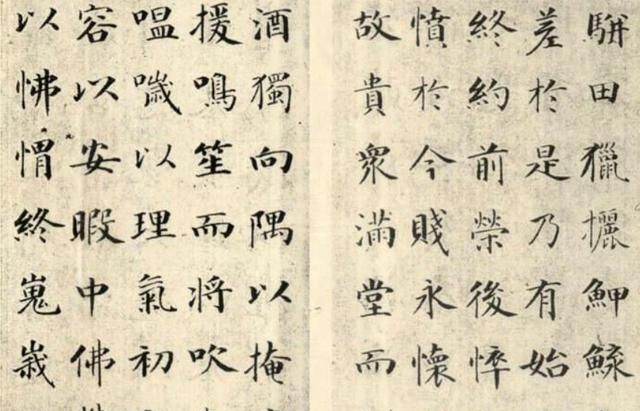 駢田獵攦魻鯑
差於是乃有始
終約前榮後悴
憤於今賤永懷
故貴眾滿堂而
酒獨向隅以掩
援鳴笙而將吹
嗢噦以理氣初
容以安暇中佛
以怫愲終嵬峩